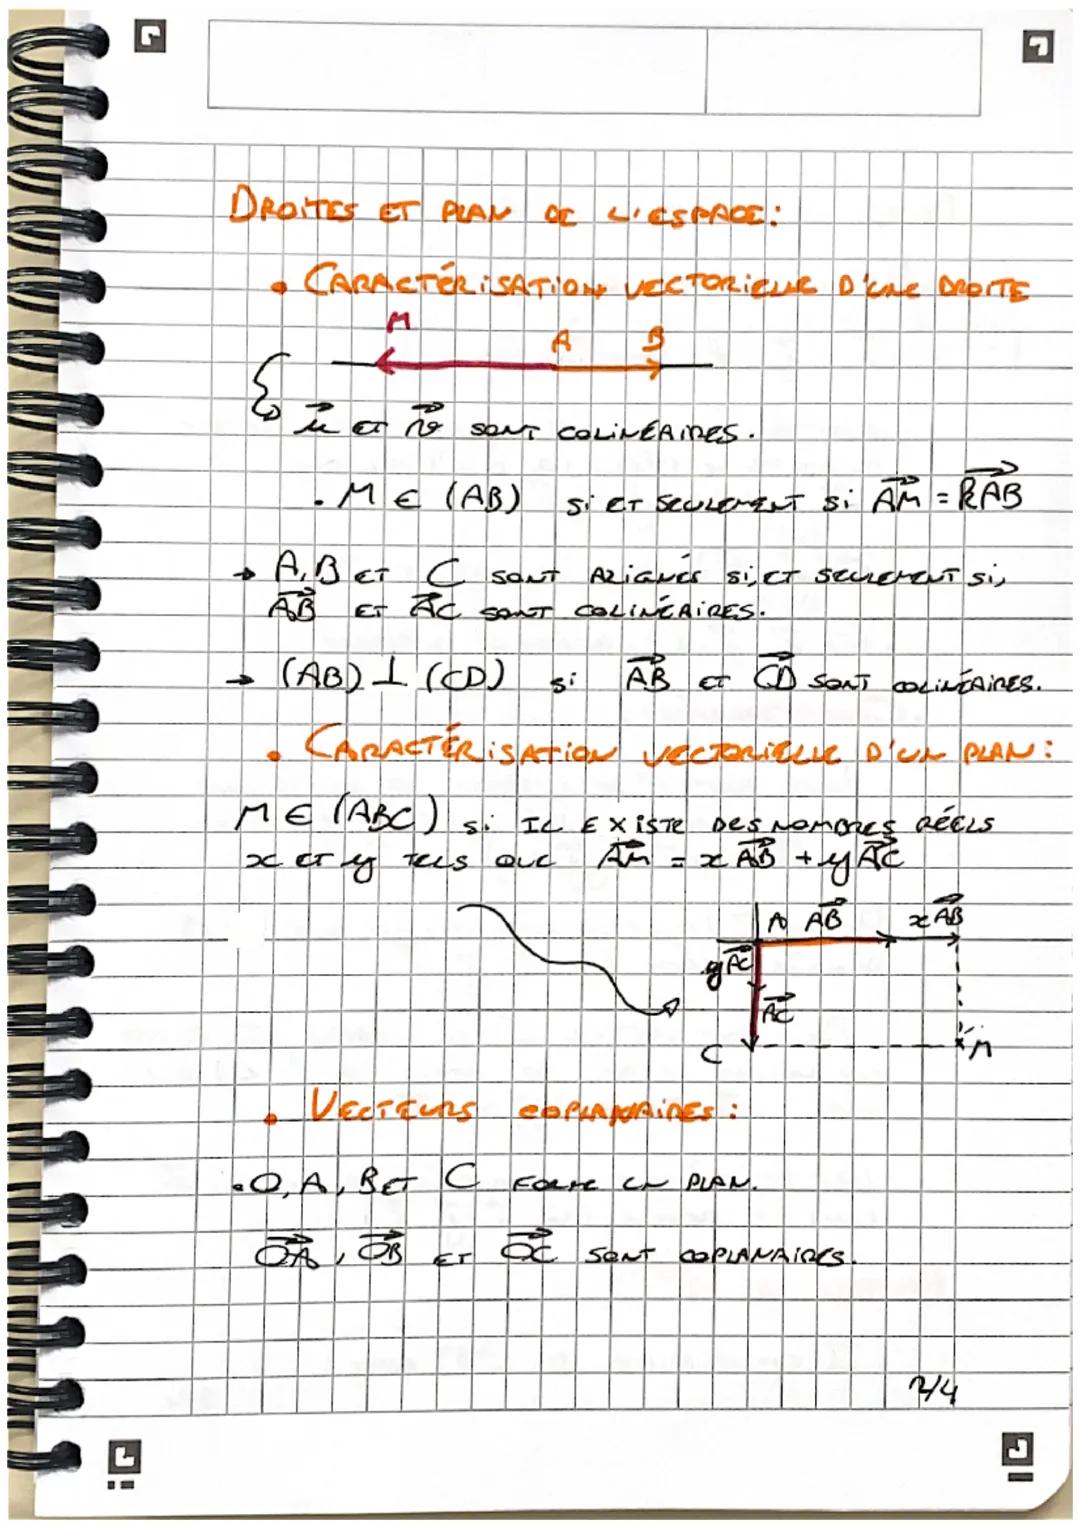 DROITES ET PLAN DE L'ESPACE:
• CARACTÉRISATION VECTORIELLE D'UNE DROITE
M A B
u⃗ ET v⃗ SONT COLINÉAIRES.
. M ∈ (AB) Si ET SEULEMENT Si AM⃗ = kAB⃗
→ A, B ET C SONT ALIGNÉS Si, ET SEULEMENT Si,
AB⃗ ET AC⃗ SONT COLINÉAIRES.
→ (AB) ⊥ (CD) Si AB⃗ ET CD⃗ SONT COLINÉAIRES.
• CARACTÉRISATION VECTORIELLE D'UN PLAN:
M ∈ (ABC) Si IL EXISTE DES NOMBRES RÉELS
x ET y TELS QUE AM⃗ = x AB⃗ + y AC⃗
A AB⃗ x AB⃗
y AC⃗
AC⃗
C M
• VECTEURS COPLANAIRES:
• O, A, B ET C FORME UN PLAN.
OA⃗, OB⃗ ET OC⃗ SONT COPLANAIRES.
2/4